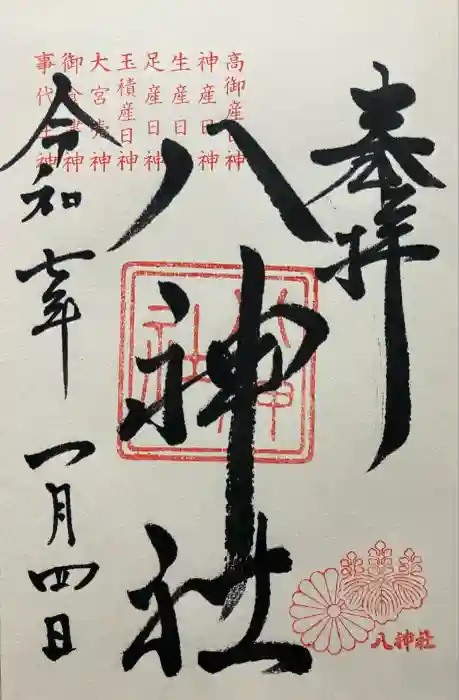 奉拝
高御産日神
神産日神
玉積産日神
生産日神
足産日神
大宮売神
御食津神
事代主神
八神社
八神社
令和七年一月四日
八神社